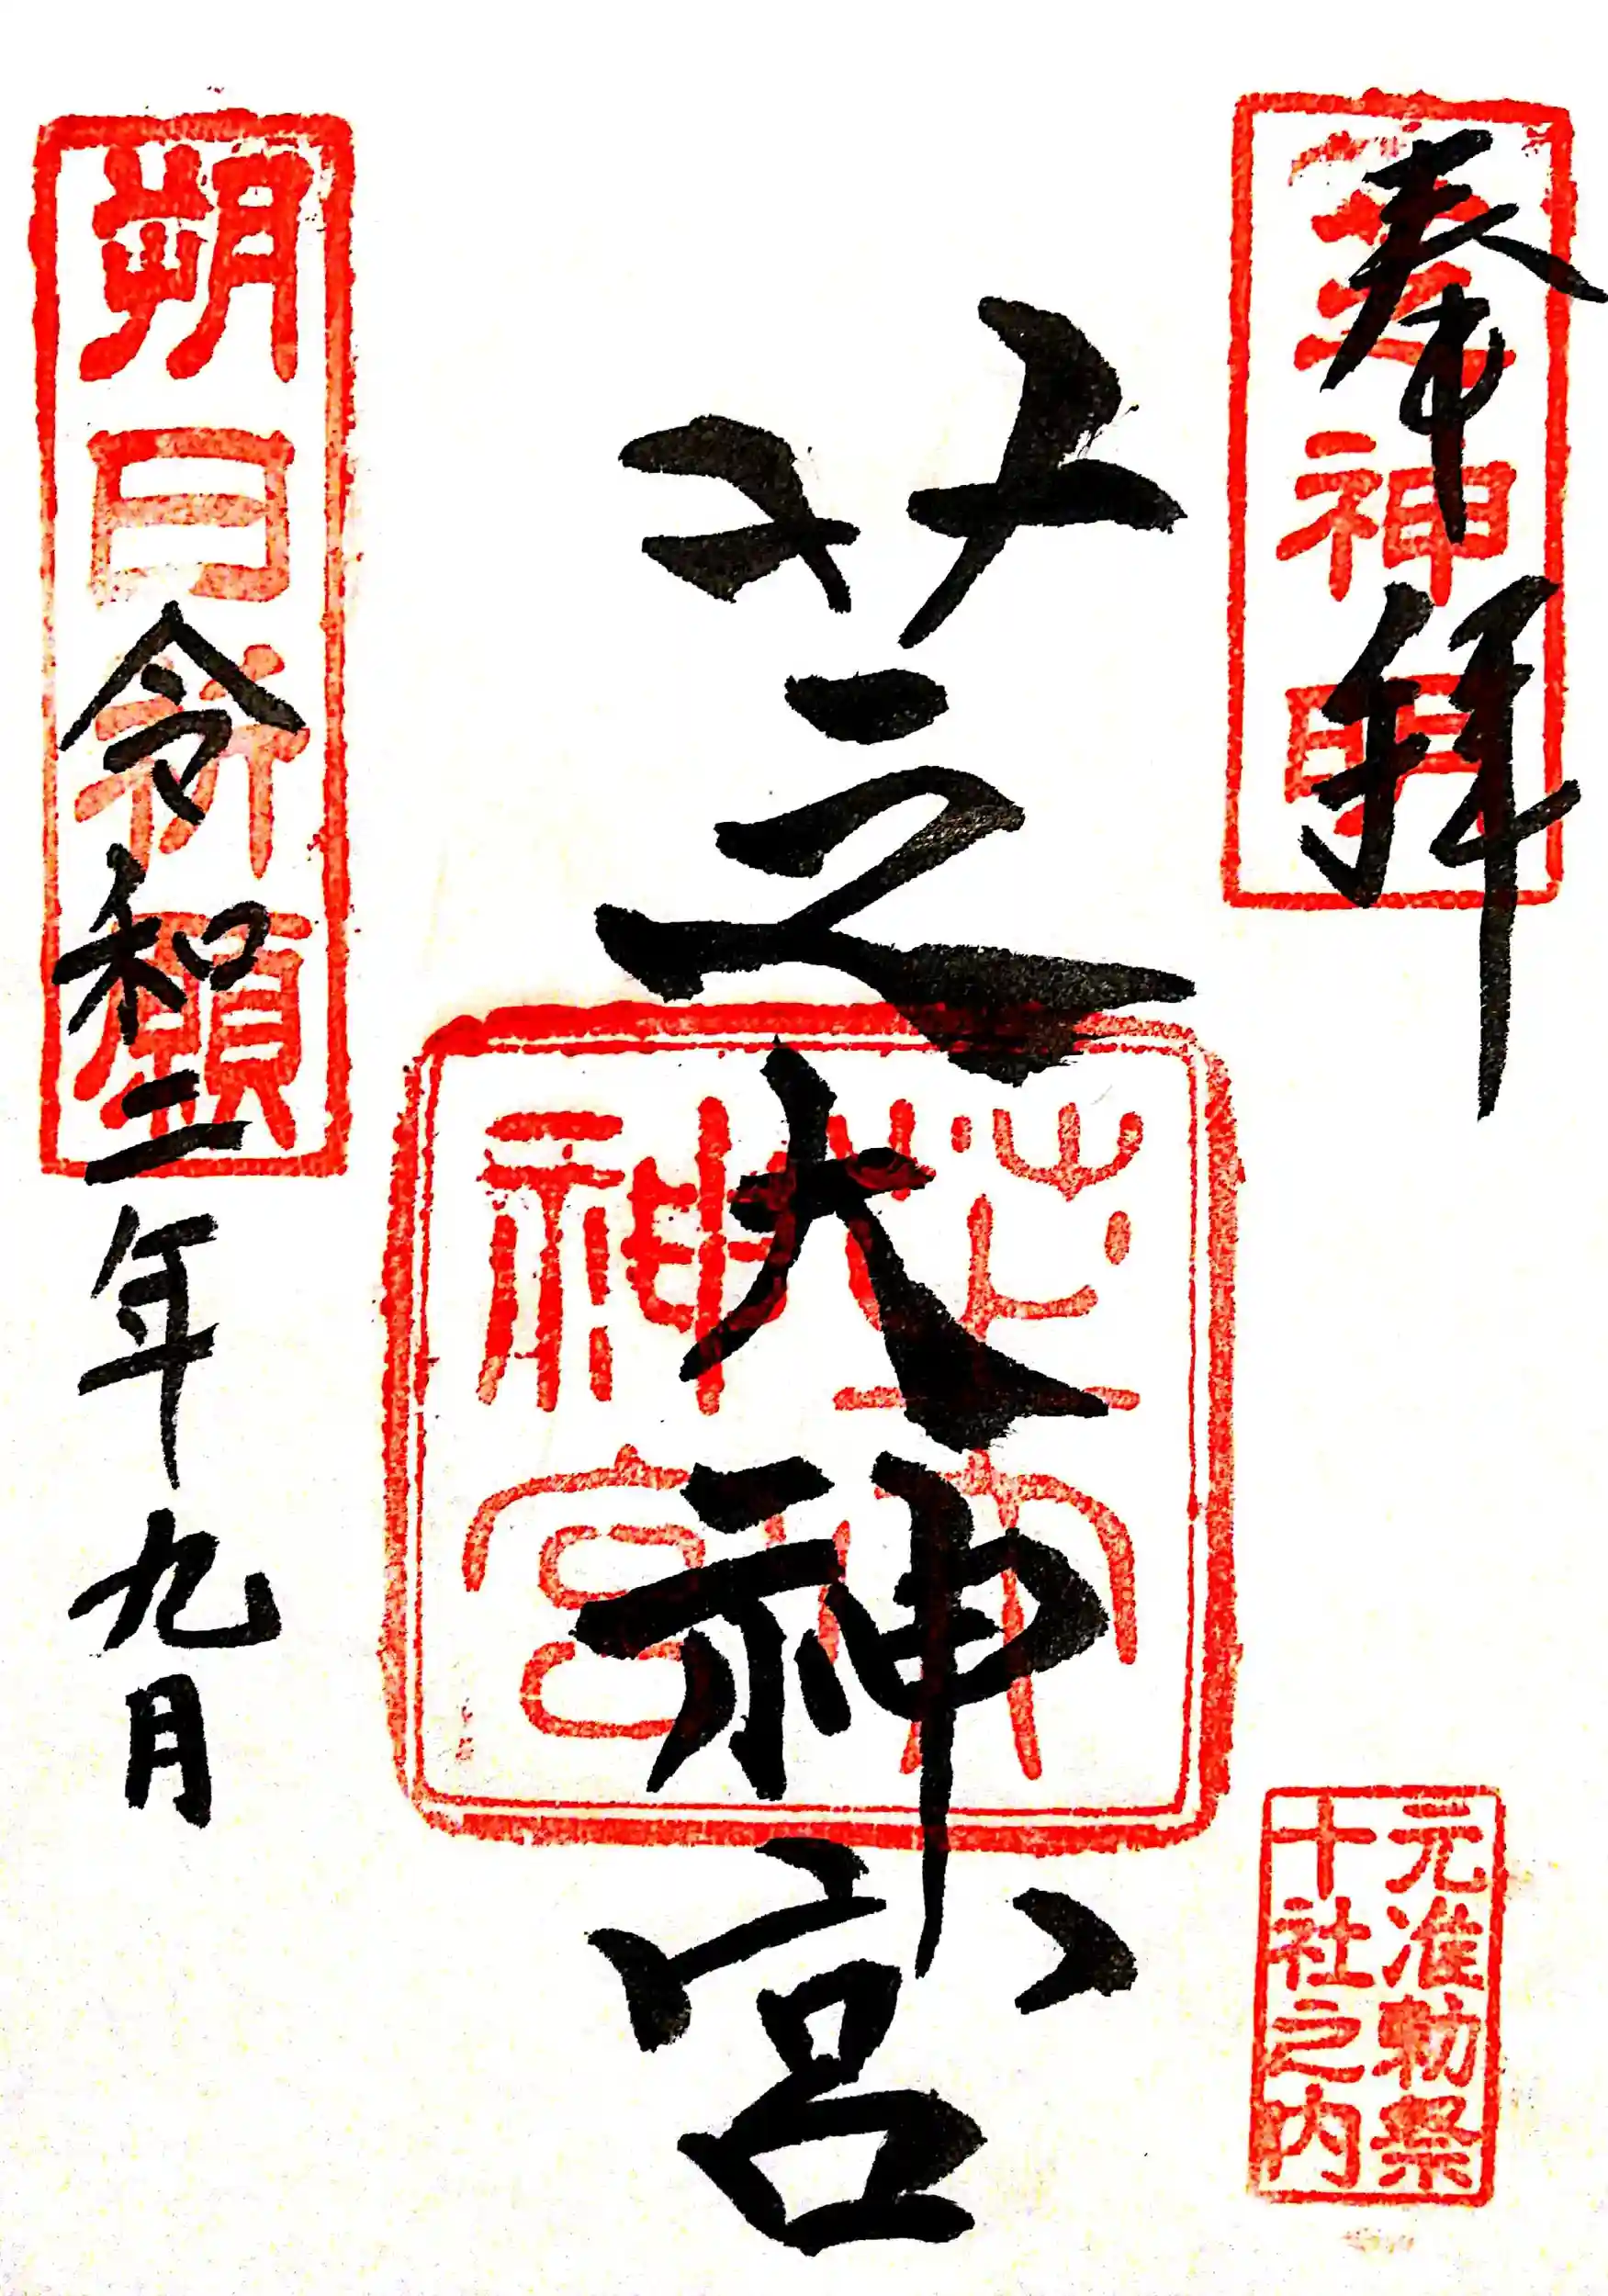 奉拝
芝神明
元准勅祭
十社之内
芝大神宮
芝大
神宮
朔日祈願
令和二年九月